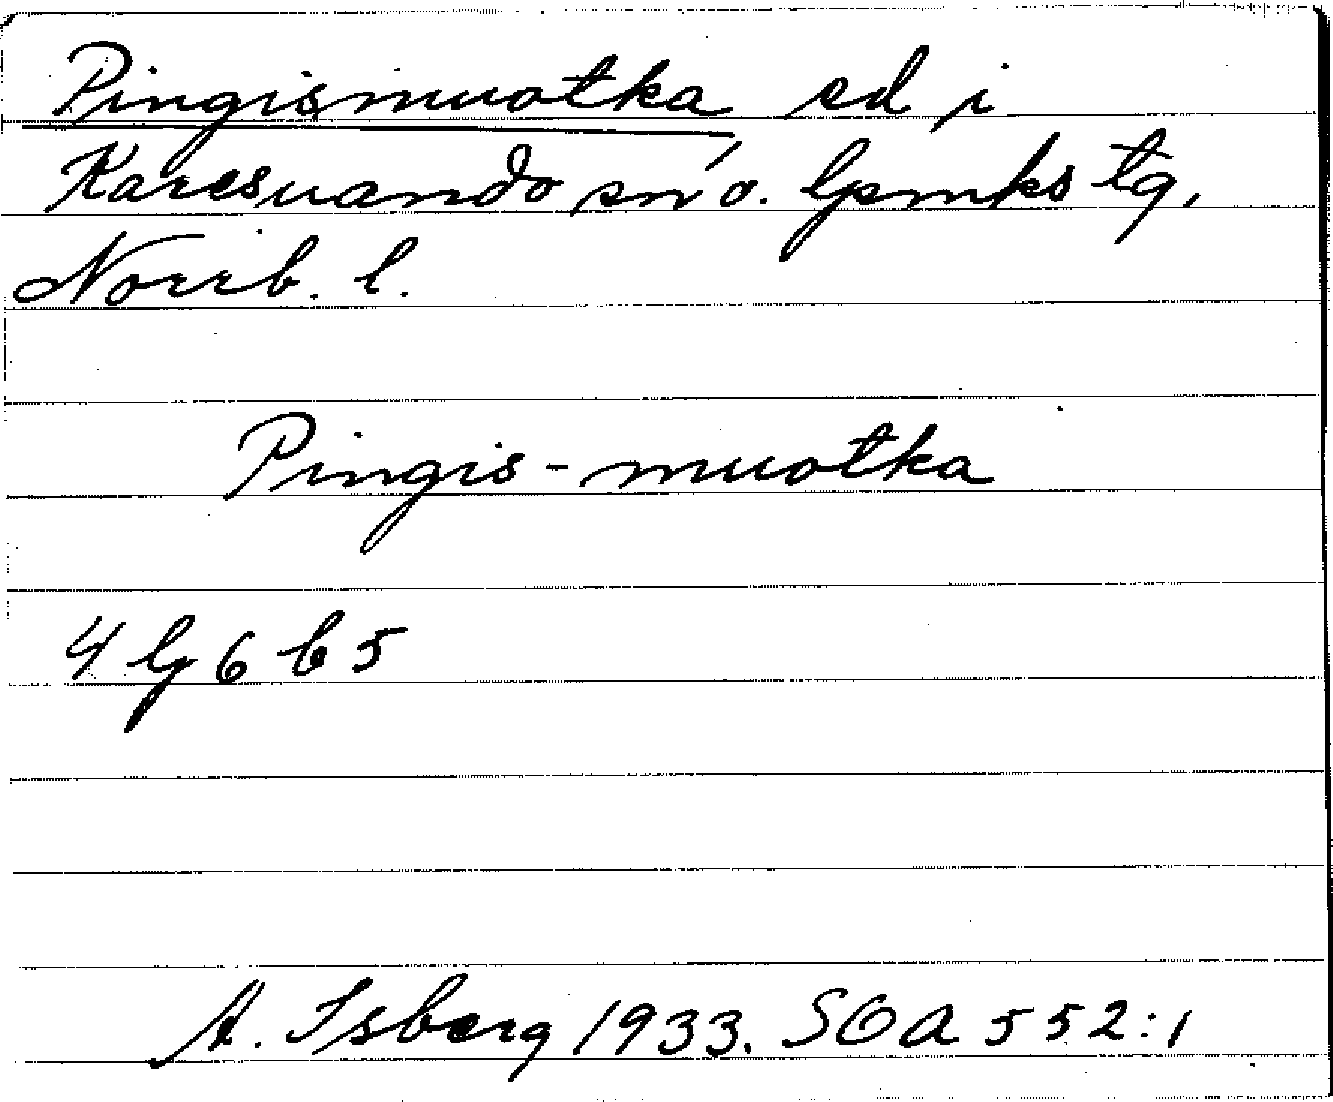 Pingismuotka, ed i
Karesuando sn o. lpmks tg,
Norrb. l.
Pingis-muotka
4 ly 6 b 5
A. Isberg 1933. SOA 552:1